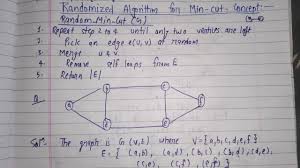 Randomized Algorithm for Min-cut Concept:-
Random Min-cut (G)
1. Repeat step 2 to 4 until only two vertices are left
2. Pick an edge e(u,v) at random
3. Merge u & v
4. Remove self loops from E
5. Return |E|
Q.
b
e
a
f
Solⁿ. The graph is G(V,E) where V={a,b,c,d,e,f}
E = {(a,b), (a,c), (b,c), (b,d), (d,e),
(c,e), (c,f), (e,f)}